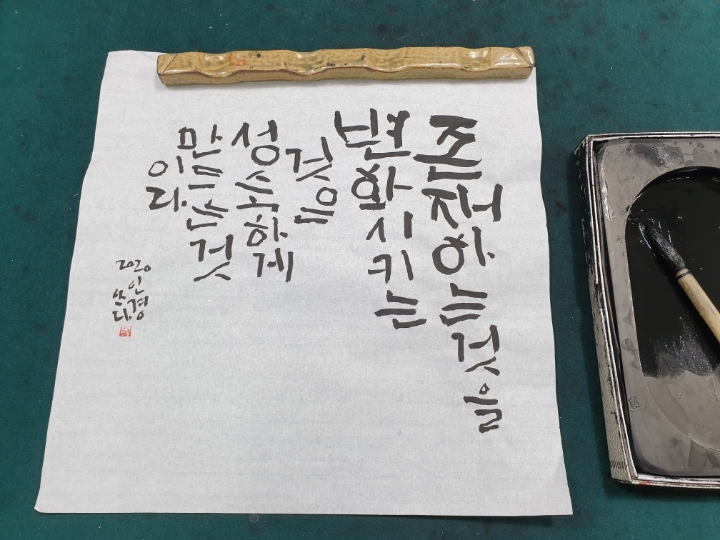 존재하는것을
변화시키는
것은
성숙하게
만드는것
이다
2020
인경
쓰다